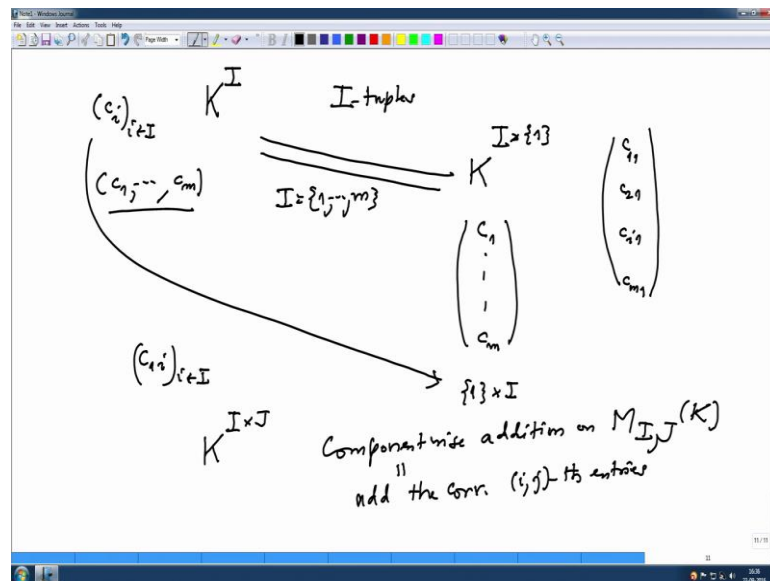 Note1 - Windows Journal
File Edit View Insert Actions Tools Help
Page Width
B I
K^I I-tuples
(c_i)_{i∈I}
K^{I×{1}}
(c_1, ---, c_m)
I={1,--,m}
c_{11}
c_{21}
c_{i1}
c_{m1}
c_1
c_m
(c_{1i})_{i∈I}
{1}×I
K^{I×J}
Componentwise addition on M_{I,J}(K)
||
add the corr. (i,j)-th entries
11 / 11
11
16:36